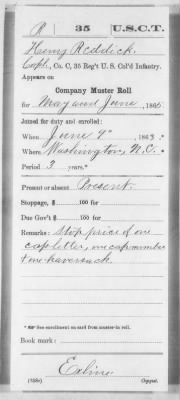 R 35 U.S.C.T.
Henry Reddick
Corpl., Co. C, 35 Reg't U. S. Col'd Infantry.
Appears on
Company Muster Roll
for May and June, 1865.
Joined for duty and enrolled:
When June 9", 1863.
Where Washington, N.C.
Period 3 years.*
Present or absent Present
Stoppage, $ 100 for
Due Gov't $ 100 for
Remarks: Stop price of one
cap letter, one cap number
& one haversack.
* See enrollment on card from muster-in roll.
Book mark:
Exline
(358c) Copyist.